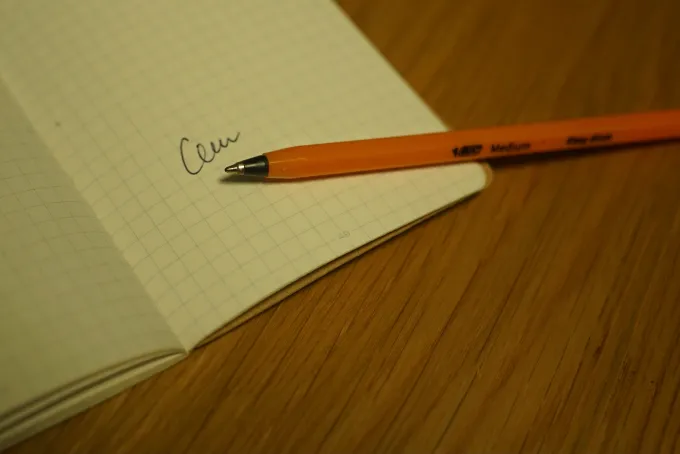 Cem
BIC Medium Easy Glide